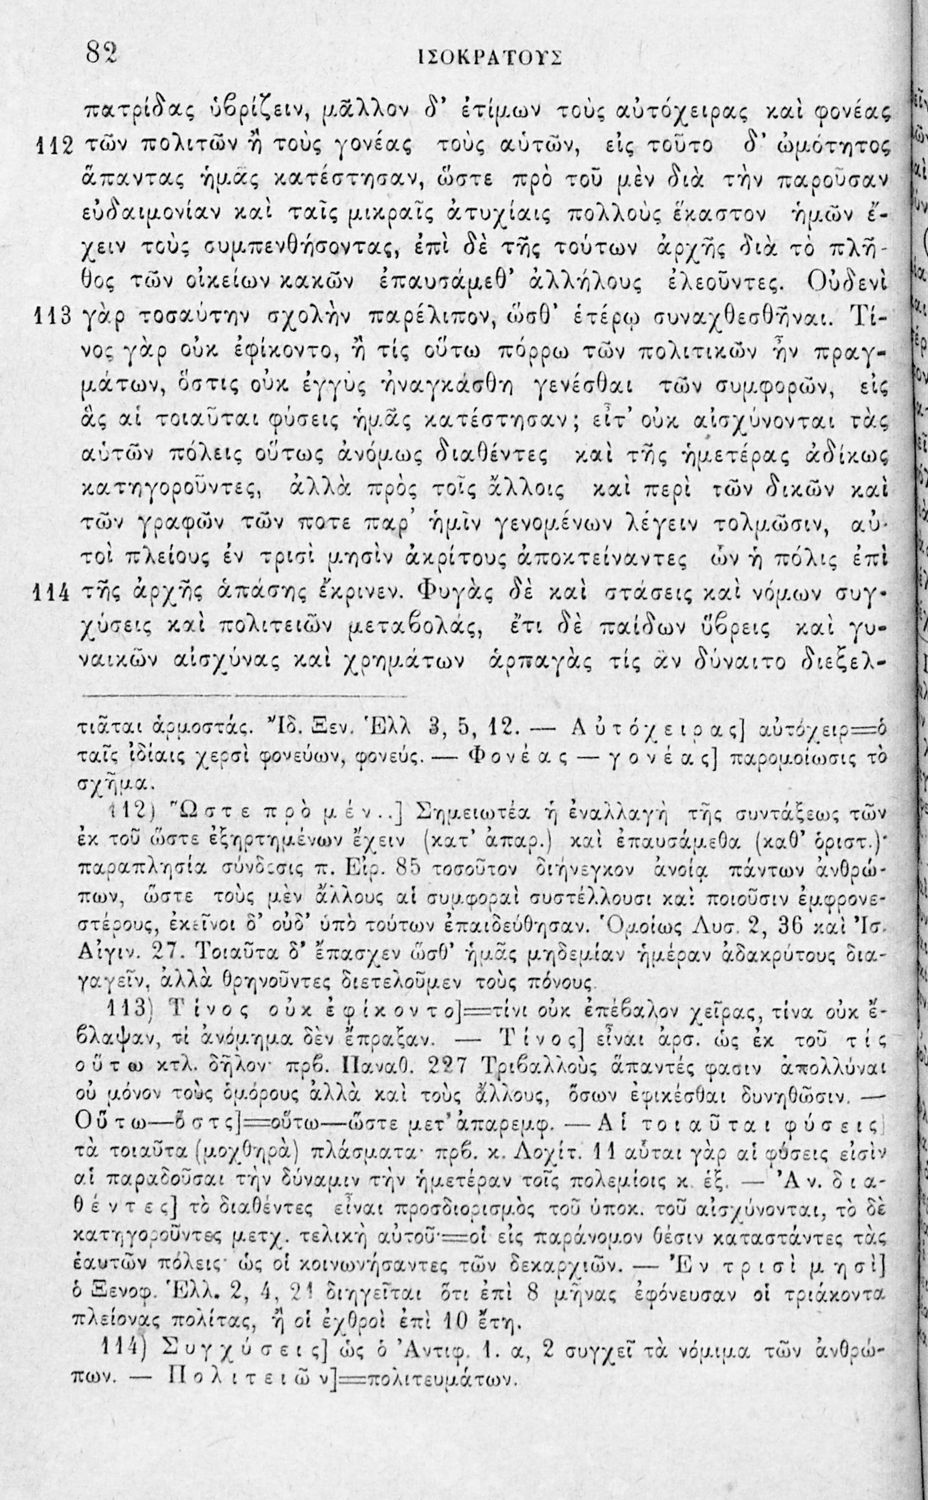 82 ΙΣΟΚΡΑΤΟΥΣ
πατρίδας ὑβρίζειν, μᾶλλον δ' ἐτίμων τοὺς αὐτόχειρας καὶ φονέας
112 τῶν πολιτῶν ἢ τοὺς γονέας τοὺς αὑτῶν, εἰς τοῦτο δ' ὠμότητος
ἅπαντας ἡμᾶς κατέστησαν, ὥστε πρὸ τοῦ μὲν διὰ τὴν παροῦσαν
εὐδαιμονίαν καὶ ταῖς μικραῖς ἀτυχίαις πολλοὺς ἕκαστον ἡμῶν ἔ-
χειν τοὺς συμπενθήσοντας, ἐπὶ δὲ τῆς τούτων ἀρχῆς διὰ τὸ πλῆ-
θος τῶν οἰκείων κακῶν ἐπαυσάμεθ' ἀλλήλους ἐλεοῦντες. Οὐδενὶ
113 γὰρ τοσαύτην σχολὴν παρέλιπον, ὥσθ' ἑτέρῳ συναχθεσθῆναι. Τί-
νος γὰρ οὐκ ἐφίκοντο, ἢ τίς οὕτω πόρρω τῶν πολιτικῶν ἦν πραγ-
μάτων, ὅστις οὐκ ἐγγὺς ἠναγκάσθη γενέσθαι τῶν συμφορῶν, εἰς
ἃς αἱ τοιαῦται φύσεις ἡμᾶς κατέστησαν; εἶτ' οὐκ αἰσχύνονται τὰς
αὑτῶν πόλεις οὕτως ἀνόμως διαθέντες καὶ τῆς ἡμετέρας ἀδίκως
κατηγοροῦντες, ἀλλὰ πρὸς τοῖς ἄλλοις καὶ περὶ τῶν δικῶν καὶ
τῶν γραφῶν τῶν ποτε παρ' ἡμῖν γενομένων λέγειν τολμῶσιν, αὐ-
τοὶ πλείους ἐν τρισὶ μησὶν ἀκρίτους ἀποκτείναντες ὧν ἡ πόλις ἐπὶ
114 τῆς ἀρχῆς ἁπάσης ἔκρινεν. Φυγὰς δὲ καὶ στάσεις καὶ νόμων συγ-
χύσεις καὶ πολιτειῶν μεταβολάς, ἔτι δὲ παίδων ὕβρεις καὶ γυ-
ναικῶν αἰσχύνας καὶ χρημάτων ἁρπαγὰς τίς ἂν δύναιτο διεξελ-
τιᾶται ἁρμοστάς. Ἴδ. Ξεν. Ἑλλ 3, 5, 12. — Αὐτόχειρας] αὐτόχειρ=ὁ
ταῖς ἰδίαις χερσὶ φονεύων, φονεύς. — Φονέας — γονέας] παρομοίωσις τὸ
σχῆμα.
112) Ὥστε πρὸ μέν..] Σημειωτέα ἡ ἐναλλαγὴ τῆς συντάξεως τῶν
ἐκ τοῦ ὥστε ἐξηρτημένων ἔχειν (κατ' ἀπαρ.) καὶ ἐπαυσάμεθα (καθ' ὁριστ.)·
παραπλησία σύνδεσις π. Εἰρ. 85 τοσοῦτον διήνεγκον ἀνοίᾳ πάντων ἀνθρώ-
πων, ὥστε τοὺς μὲν ἄλλους αἱ συμφοραὶ συστέλλουσι καὶ ποιοῦσιν ἐμφρονε-
στέρους, ἐκεῖνοι δ' οὐδ' ὑπὸ τούτων ἐπαιδεύθησαν. Ὁμοίως Λυσ. 2, 36 καὶ Ἰσ.
Αἰγιν. 27. Τοιαῦτα δ' ἔπασχεν ὥσθ' ἡμᾶς μηδεμίαν ἡμέραν ἀδακρύτους δια-
γαγεῖν, ἀλλὰ θρηνοῦντες διετελοῦμεν τοὺς πόνους.
113) Τίνος οὐκ ἐφίκοντο]=τίνι οὐκ ἐπέβαλον χεῖρας, τίνα οὐκ ἔ-
βλαψαν, τί ἀνόμημα δὲν ἔπραξαν. — Τίνος] εἶναι ἀρσ. ὡς ἐκ τοῦ τίς
οὕτω κτλ. δῆλον· πρβ. Παναθ. 227 Τριβαλλοὺς ἅπαντές φασιν ἀπολλύναι
οὐ μόνον τοὺς ὁμόρους ἀλλὰ καὶ τοὺς ἄλλους, ὅσων ἐφικέσθαι δυνηθῶσιν. —
Οὕτω—ὅστς]=οὕτω—ὥστε μετ' ἀπαρεμφ. — Αἱ τοιαῦται φύσεις]
τὰ τοιαῦτα (μοχθηρὰ) πλάσματα· πρβ. κ. Λοχίτ. 11 αὗται γὰρ αἱ φύσεις εἰσὶν
αἱ παραδοῦσαι τὴν δύναμιν τὴν ἡμετέραν τοῖς πολεμίοις κ. ἑξ. — Ἀν. δια-
θέντες] τὸ διαθέντες εἶναι προσδιορισμὸς τοῦ ὑποκ. τοῦ αἰσχύνονται, τὸ δὲ
κατηγοροῦντες μετχ. τελικὴ αὐτοῦ·=οἱ εἰς παράνομον θέσιν καταστάντες τὰς
ἑαυτῶν πόλεις· ὡς οἱ κοινωνήσαντες τῶν δεκαρχιῶν. — Ἐν τρισὶ μησὶ]
ὁ Ξενοφ. Ἑλλ. 2, 4, 21 διηγεῖται ὅτι ἐπὶ 8 μῆνας ἐφόνευσαν οἱ τριάκοντα
πλείονας πολίτας, ἢ οἱ ἐχθροὶ ἐπὶ 10 ἔτη.
114) Συγχύσεις] ὡς ὁ Ἀντιφ. 1. α, 2 συγχεῖ τὰ νόμιμα τῶν ἀνθρώ-
πων. — Πολιτειῶν]=πολιτευμάτων.